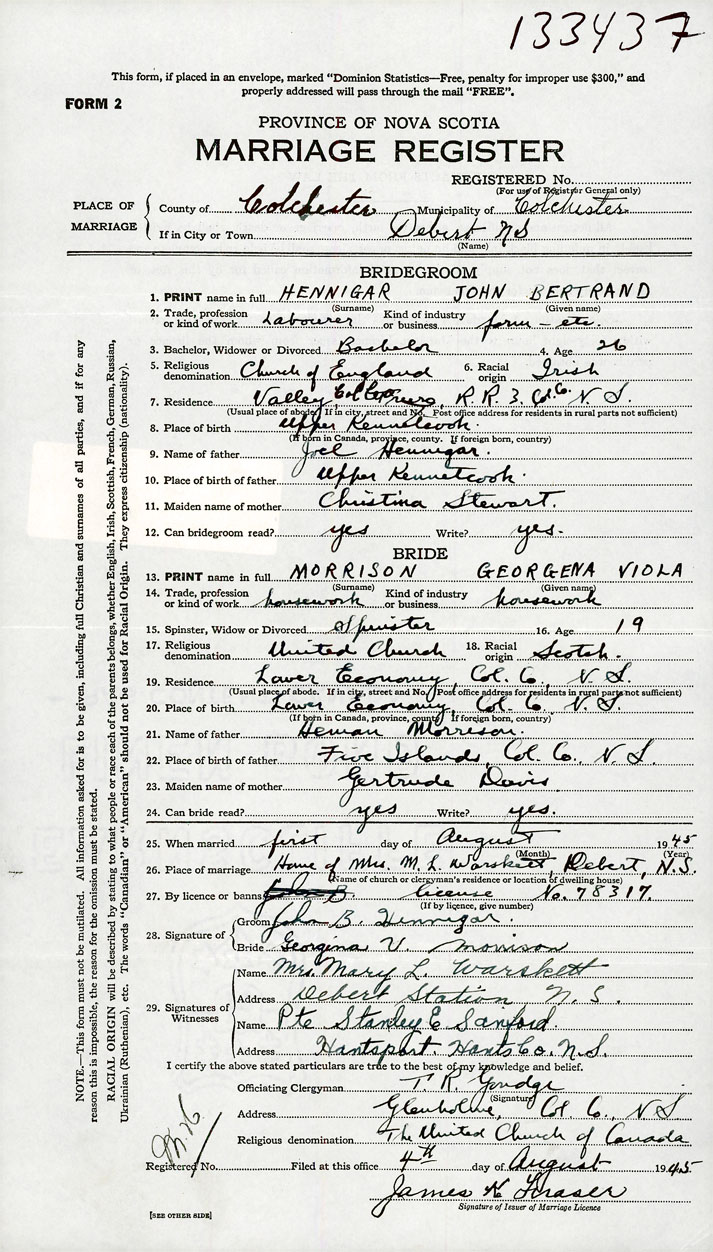 133437
This form, if placed in an envelope, marked "Dominion Statistics—Free, penalty for improper use $300," and
properly addressed will pass through the mail "FREE".
FORM 2
PROVINCE OF NOVA SCOTIA
MARRIAGE REGISTER
REGISTERED No.
(For use of Registrar General only)
PLACE OF MARRIAGE
County of Colchester Municipality of Colchester
If in City or Town Debert NS
(Name)
BRIDEGROOM
1. PRINT name in full HENNIGAR JOHN BERTRAND
(Surname) (Given name)
2. Trade, profession or kind of work Labourer Kind of industry or business farm - etc.
3. Bachelor, Widower or Divorced Bachelor 4. Age 26
5. Religious denomination Church of England 6. Racial origin Irish
7. Residence Valley R.R. 3. Col. Co. N S.
(Usual place of abode. If in city, street and No. Post office address for residents in rural parts not sufficient)
8. Place of birth Upper Kennetcook.
(If born in Canada, province, county. If foreign born, country)
9. Name of father Joel Hennigar.
10. Place of birth of father Upper Kennetcook.
11. Maiden name of mother Christina Stewart.
12. Can bridegroom read? yes Write? yes.
BRIDE
13. PRINT name in full MORRISON GEORGENA VIOLA
(Surname) (Given name)
14. Trade, profession or kind of work housework Kind of industry or business housework
15. Spinster, Widow or Divorced Spinster 16. Age 19
17. Religious denomination United Church 18. Racial origin Scotch.
19. Residence Lower Economy, Col. Co. N S.
(Usual place of abode. If in city, street and No. Post office address for residents in rural parts not sufficient)
20. Place of birth Lower Economy, Col. Co. N.S.
(If born in Canada, province, county. If foreign born, country)
21. Name of father Heman Morrison.
22. Place of birth of father Five Islands, Col. Co., N. S.
23. Maiden name of mother Gertrude Davis
24. Can bride read? yes Write? yes.
25. When married first day of August 1945
(Month) (Year)
26. Place of marriage Home of Mrs. M. L. Warskett, Debert, N.S.
(Name of church or clergyman's residence or location of dwelling house)
27. By licence or banns license No. 78317.
(If by licence, give number)
28. Signature of
Groom John B. Hennigar.
Bride Georgena V. Morrison
29. Signatures of Witnesses
Name Mrs. Mary L. Warskett
Address Debert Station N.S.
Name Pte Stanley E Sanford.
Address Hantsport. Hants Co. N.S.
I certify the above stated particulars are true to the best of my knowledge and belief.
Officiating Clergyman T. R. Goudge
(Signature)
Address Glenholme, Col. Co, N S
Religious denomination The United Church of Canada
Registered No. Filed at this office 4th day of August 1945
James K Fraser
Signature of Issuer of Marriage Licence
[SEE OTHER SIDE]
NOTE.—This form must not be mutilated. All information asked for is to be given, including full Christian and surnames of all parties, and if for any
reason this is impossible, the reason for the omission must be stated.
RACIAL ORIGIN will be described by stating to what people or race each of the parents belongs, whether English, Irish, Scottish, French, German, Russian,
Ukrainian (Ruthenian), etc. The words "Canadian" or "American" should not be used for Racial Origin. They express citizenship (nationality).